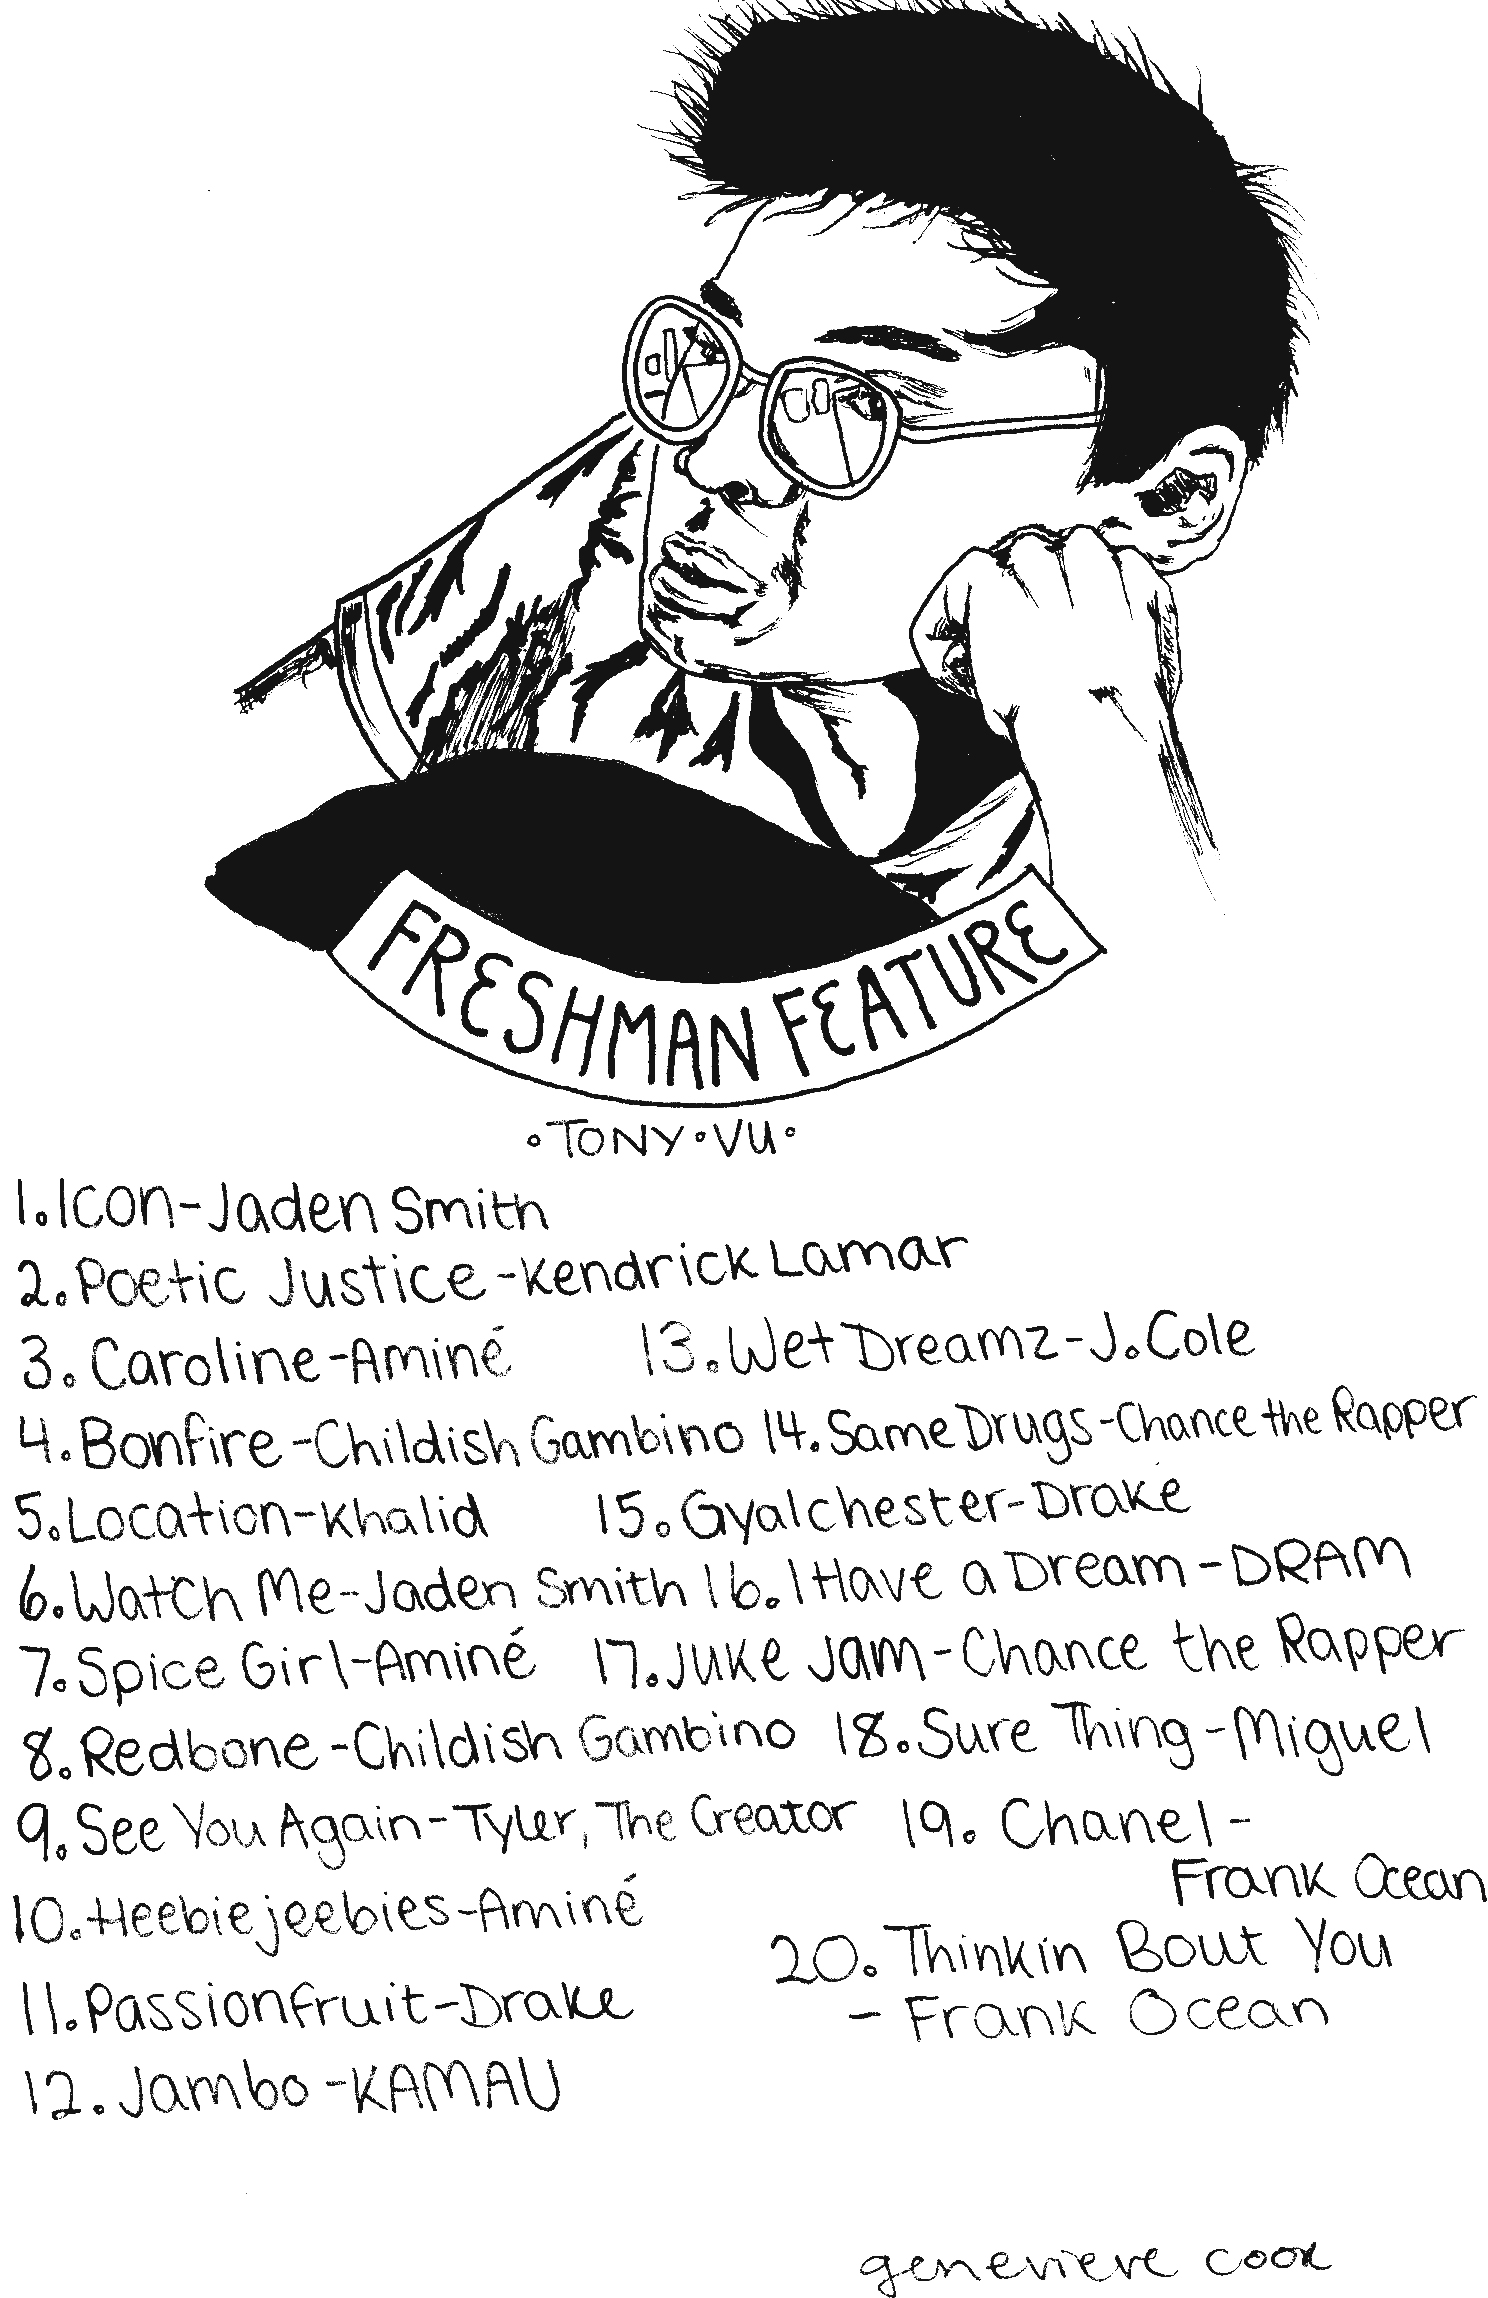 FRESHMAN FEATURE
•TONY•VU•
1. Icon-Jaden Smith
2. Poetic Justice-Kendrick Lamar
3. Caroline-Aminé
4. Bonfire-Childish Gambino
5. Location-Khalid
6. Watch Me-Jaden Smith
7. Spice Girl-Aminé
8. Redbone-Childish Gambino
9. See You Again-Tyler, The Creator
10. Heebiejeebies-Aminé
11. Passionfruit-Drake
12. Jambo-KAMAU
13. Wet Dreamz-J. Cole
14. Same Drugs-Chance the Rapper
15. Gyalchester-Drake
16. I Have a Dream-DRAM
17. Juke Jam-Chance the Rapper
18. Sure Thing-Miguel
19. Chanel-
Frank Ocean
20. Thinkin Bout You
- Frank Ocean
genevieve cook